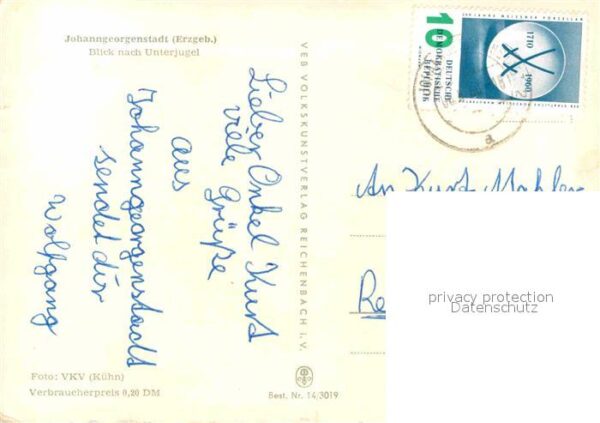 Johanngeorgenstadt (Erzgeb.)
Blick nach Unterjugel
Lieber Onkel Kurt
viele Grüße
aus
Johanngeorgenstadt
sendet dir
Wolfgang
Foto: VKV (Kühn)
Verbraucherpreis 0,20 DM
VEB VOLKSKUNSTVERLAG REICHENBACH i. V.
Best. Nr. 14/3019
10
DEUTSCHE
DEMOKRATISCHE
REPUBLIK
1710
1960
An Kurt Mahler
privacy protection
Datenschutz